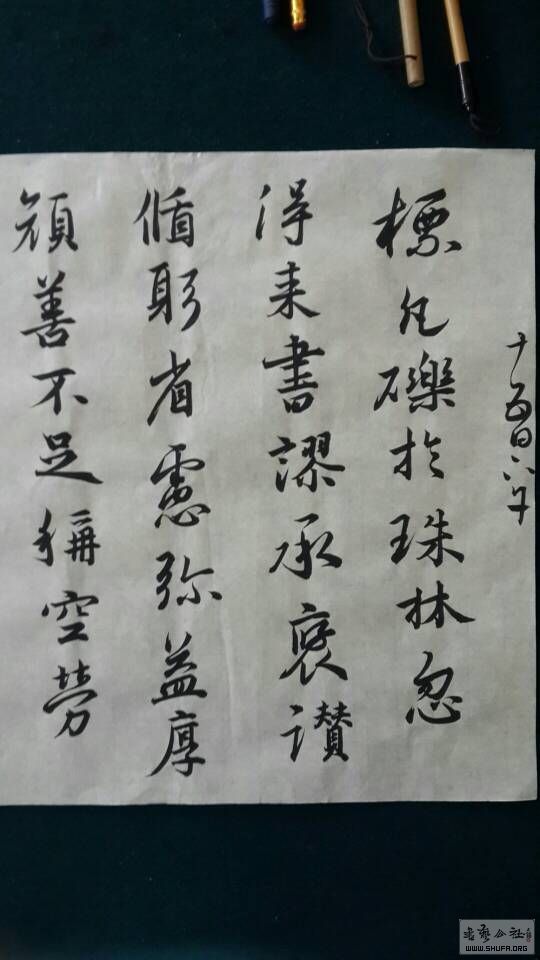 十五日下午
標瓦礫於珠林忽
得来書謬承褒讃
循躬省慮弥益厚
顔善不足稱空勞
书艺公社
WWW.SHUFA.ORG